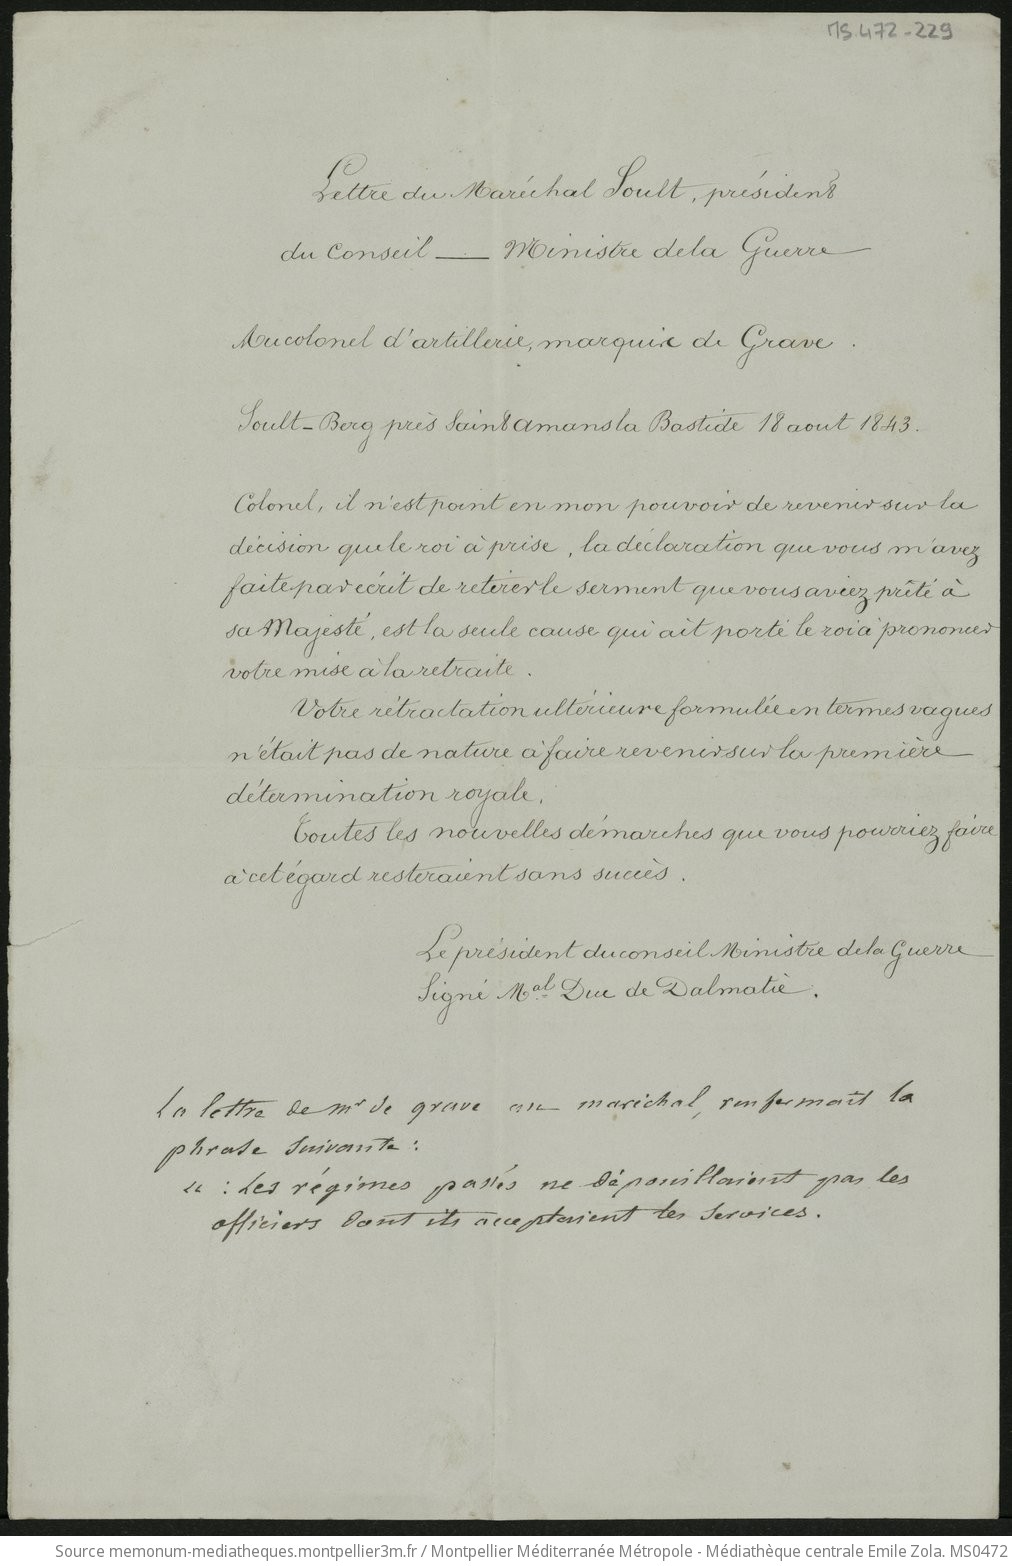 MS.472-229
Lettre du Maréchal Soult, président
du Conseil — Ministre de la Guerre
Au colonel d'artillerie, marquis de Grave.
Soult-Berg près Saint Amans la Bastide 18 aout 1843.
Colonel, il n'est point en mon pouvoir de revenir sur la
décision que le roi à prise, la déclaration que vous m'avez
faite par écrit de retirer le serment que vous aviez prêté à
sa Majesté, est la seule cause qui ait porté le roi à prononcer
votre mise à la retraite.
Votre rétractation ultérieure formulée en termes vagues
n'était pas de nature à faire revenir sur la première
détermination royale.
Toutes les nouvelles démarches que vous pourriez faire
à cet égard resteraient sans succès.
Le président du conseil Ministre de la Guerre
Signé Mal Duc de Dalmatie.
La lettre de mr de grave au maréchal, renfermait la
phrase suivante :
" : Les régimes passés ne dépouillaient pas les
officiers dont ils acceptaient les services.
Source memonum-mediatheques.montpellier3m.fr / Montpellier Méditerranée Métropole - Médiathèque centrale Emile Zola. MS0472